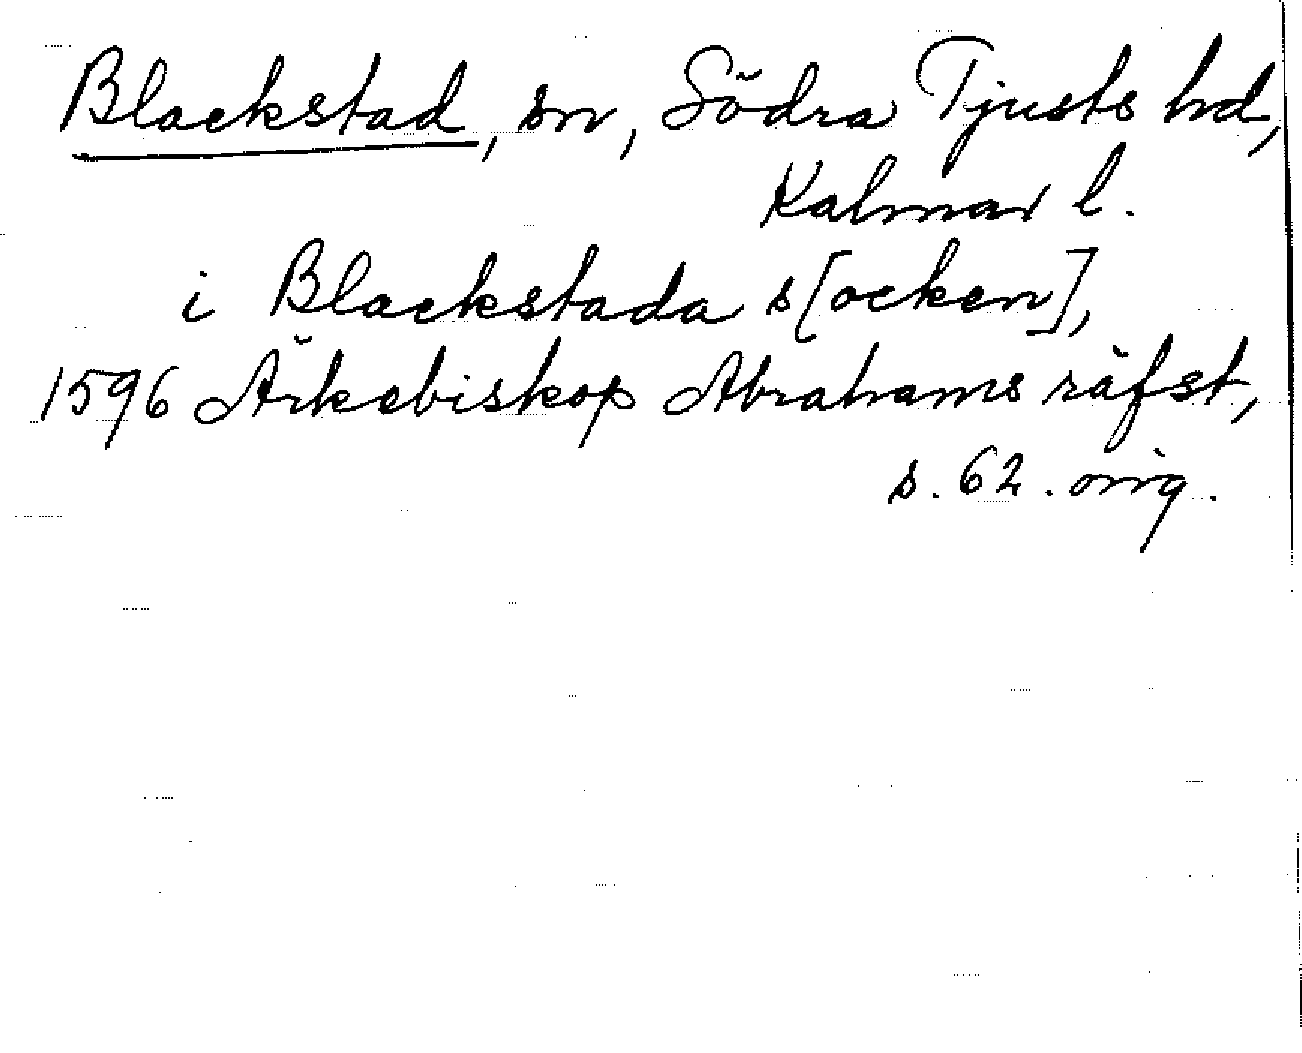 Blackstad, sn, Södra Tjusts hd,
Kalmar l.
i Blackstada s[ocken],
1596 Ärkebiskop Abrahams räfst,
s. 62. orig.